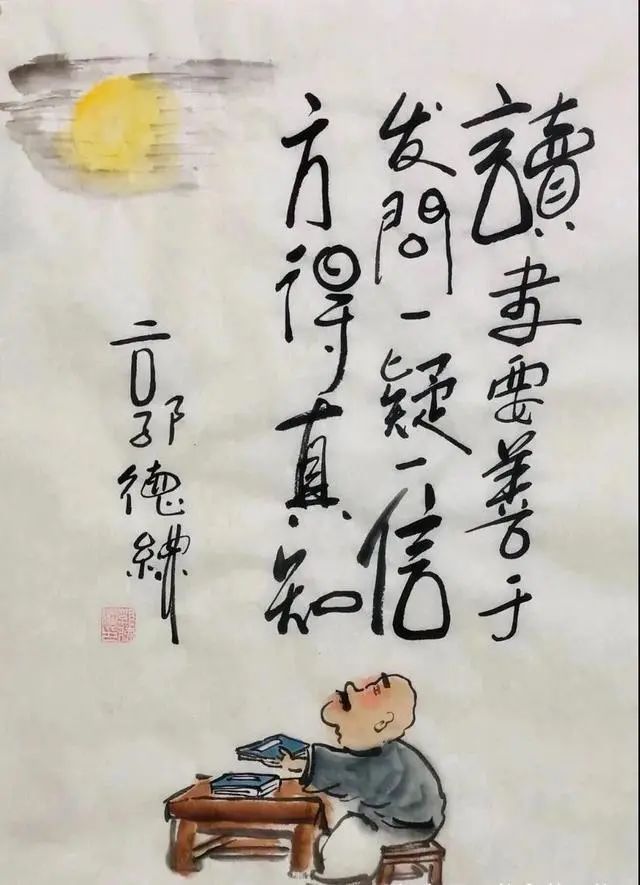 讀書要善于
发問一疑一信
方得真知
郭德綱